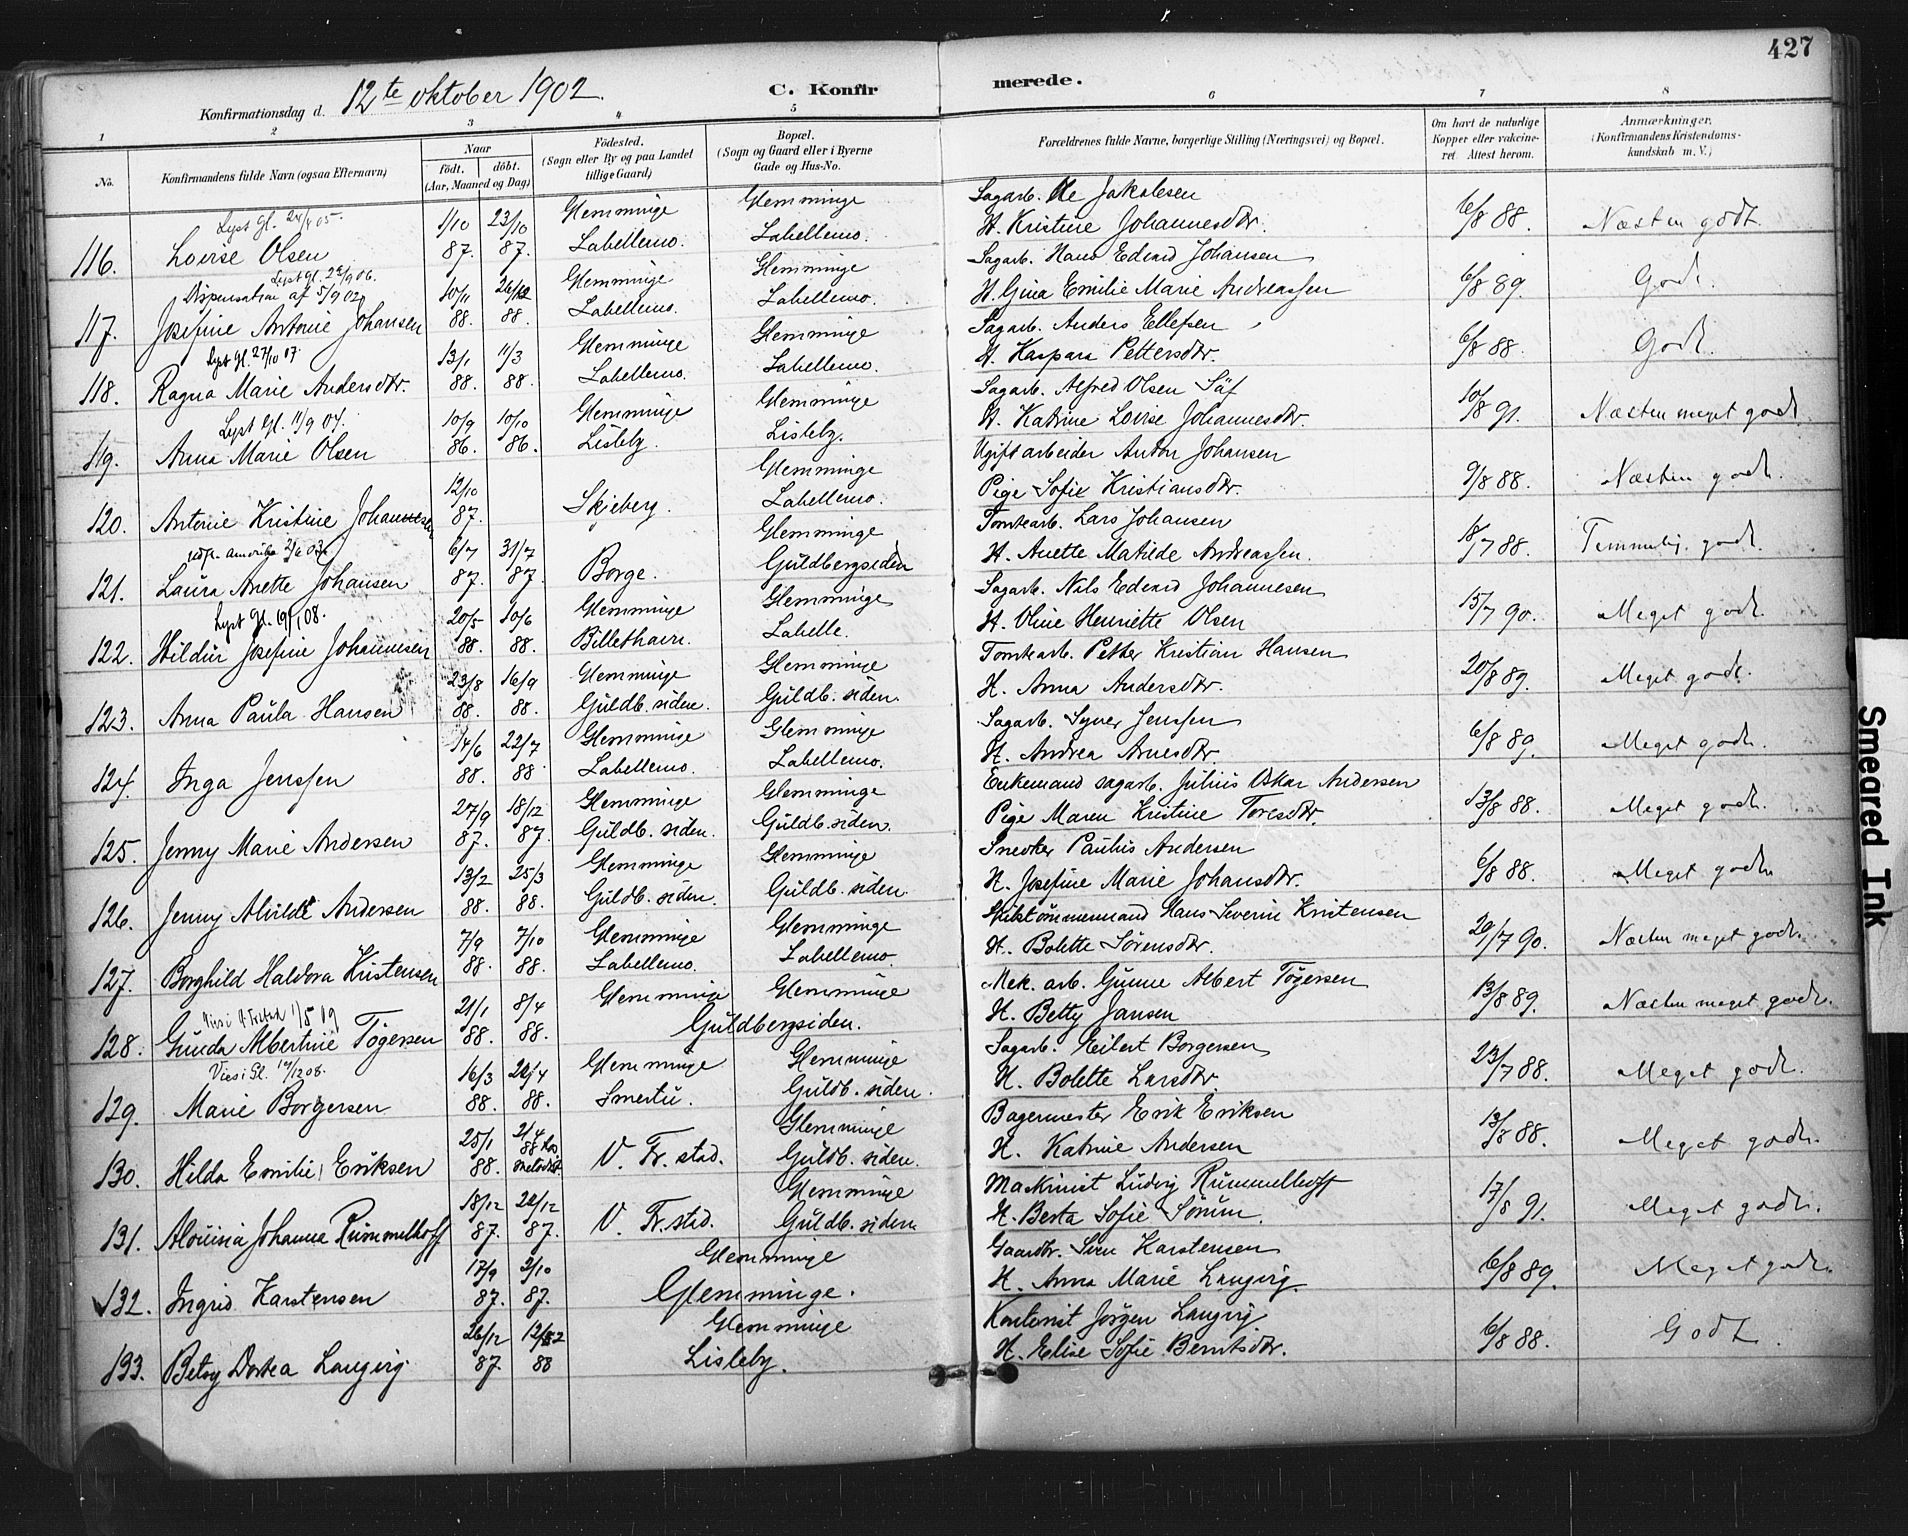 427
Konfirmationsdag d. 12te oktober 1902. C. Konfirmerede.
1 2 3 4 5 6 7 8
No. Konfirmandens fulde Navn (ogsaa Efternavn) Naar født. døbt. (Aar, Maaned og Dag) Fødested. (Sogn eller By og paa Landet tillige Gaard) Bopæl. (Sogn og Gaard eller i Byerne Gade og Hus-No. Forældrenes fulde Navne, borgerlige Stilling (Næringsvei) og Bopæl. Om havt de naturlige Kopper eller vakcineret Attest herom. Anmærkninger. (Konfirmandens Kristendomskundskab m. V.)
Lyst Gl. 05. 1/10 23/10 Glemminge Glemminge Sagarb. Ole Jakobsen
116. Lovise Olsen 87. 87. Labellemo. Labellemo. H. Kristine Johannesdtr. 6/8 88. Næsten godt
Lyst Gl. 06.
Dispensation af 5/9 02 10/11 26/12 Glemminge Glemminge Sagarb. Hans Edvard Johansen
117. Josefine Antonie Johansen 88. 88. Labellemo. Labellemo. H. Gina Emilie Marie Andreassen 6/8 89. Godt.
Lyst Gl. 27/10 07 13/1 11/3 Glemminge Glemminge Sagarb. Anders Ellefsen
118. Ragna Marie Andersdtr. 88. 88. Labellemo. Labellemo. H. Kaspara Pettersdtr. 6/8 88. Godt.
Lyst Gl. 11/9 04. 10/9 10/10 Glemminge Glemminge Sagarb. Alfred Olsen Säf
119. Anna Marie Olsen 86. 86. Lisleby. Lisleby. H. Katrine Lovise Johannesdtr. 10/8 91. Næsten meget godt
12/10 Glemminge Ugift arbeider Anton Johansen
120. Antonie Kristine Johannesen 87. Skjeberg. Labellemo. Pige Sofie Kristiansdtr. 9/8 88. Næsten godt.
Amerika 6/7 31/7 Glemminge Tomtearb. Lars Johansen
121. Laura Anette Johansen 87. 87. Borge. Guldbergsiden H. Anette Matilde Andreassen. 18/7 88. Temmelig godt.
Lyst Gl. 08. 20/5 10/6 Glemminge Glemminge Sagarb. Nils Edvard Johannesen
122. Hildur Josefine Johannesen 88. 88. Billethavn. Labelle. H. Oline Henriette Olsen 15/7 90. Meget godt.
23/8 16/9 Glemminge Glemminge Tomtearb. Petter Kristian Hansen
123. Anna Paula Hansen 88. 88. Guldb. siden. Guldb. siden. H. Anna Andersdtr. 20/8 89. Meget godt.
14/6 22/7 Glemminge Glemminge Sagarb. Syver Jenssen
124. Inga Jenssen 88. 88. Labellemo. Labellemo. H. Andrea Arnesdtr. 6/8 89. Meget godt.
27/9 18/12 Glemminge Glemminge Enkemand sagarb. Julius Oskar Andersen
125. Jenny Marie Andersen 87. 87. Guldb. siden. Guldb. siden. Pige Maren Kristine Toresdtr. 13/8 88. Meget godt.
13/2 25/3 Glemminge Glemminge Snedker Paulius Andersen
126. Jenny Alvilde Andersen 88. 88. Guldb. siden. Guldb. siden. H. Josefine Marie Johansdtr. 6/8 88. Meget godt
7/9 7/10 Glemminge Glemminge Skibstømmermand Hans Severin Kristensen
127. Borghild Haldora Kristensen 88. 88. Labellemo. Labellemo. H. Bolette Sørensdtr. 29/7 90. Næsten meget godt.
Viesi V Frstad 1/5 09 21/1 8/4 Glemminge Glemminge Mek. arb. Gunne Albert Tøgersen
128. Gunda Albertine Tøgersen 88. 88. Guldbergsiden. H. Betty Jansen 13/8 89. Næsten meget godt.
Viesi Gl. 08. 16/3 22/4 Glemminge Glemminge Sagarb. Eilert Borgersen
129. Marie Borgersen 88. 88. Smertu. Guldb. siden. H. Bolette Larsdtr. 23/7 88. Meget godt.
25/1 2/4 Glemminge Bagermester Erik Eriksen
130. Hilda Emilie Eriksen 88. 88 hos metodist V. Fr. stad. Guldb. siden. H. Katrine Andersen 13/8 88. Meget godt.
18/12 22/12 Glemminge Maskinist Ludvig Rummelhoff
131. Alouisia Johanna Rummelhoff 87. 87. V. Fr. stad. Guldb. siden H. Berta Sofie Sørum. 17/8 91. Meget godt.
17/9 2/10 Glemminge Gaardbr. Sven Karstensen
132. Ingrid Karstensen 87. 87. Glemminge. H. Anna Marie Langvig. 6/8 89. Meget godt.
26/12 12/2 Glemminge Kontorist Jørgen Langvig
133. Betsy Dortea Langvig. 87. 88 Lisleby. H. Elise Sofie Berntsdtr. 6/8 88. Godt.
Smeared Ink